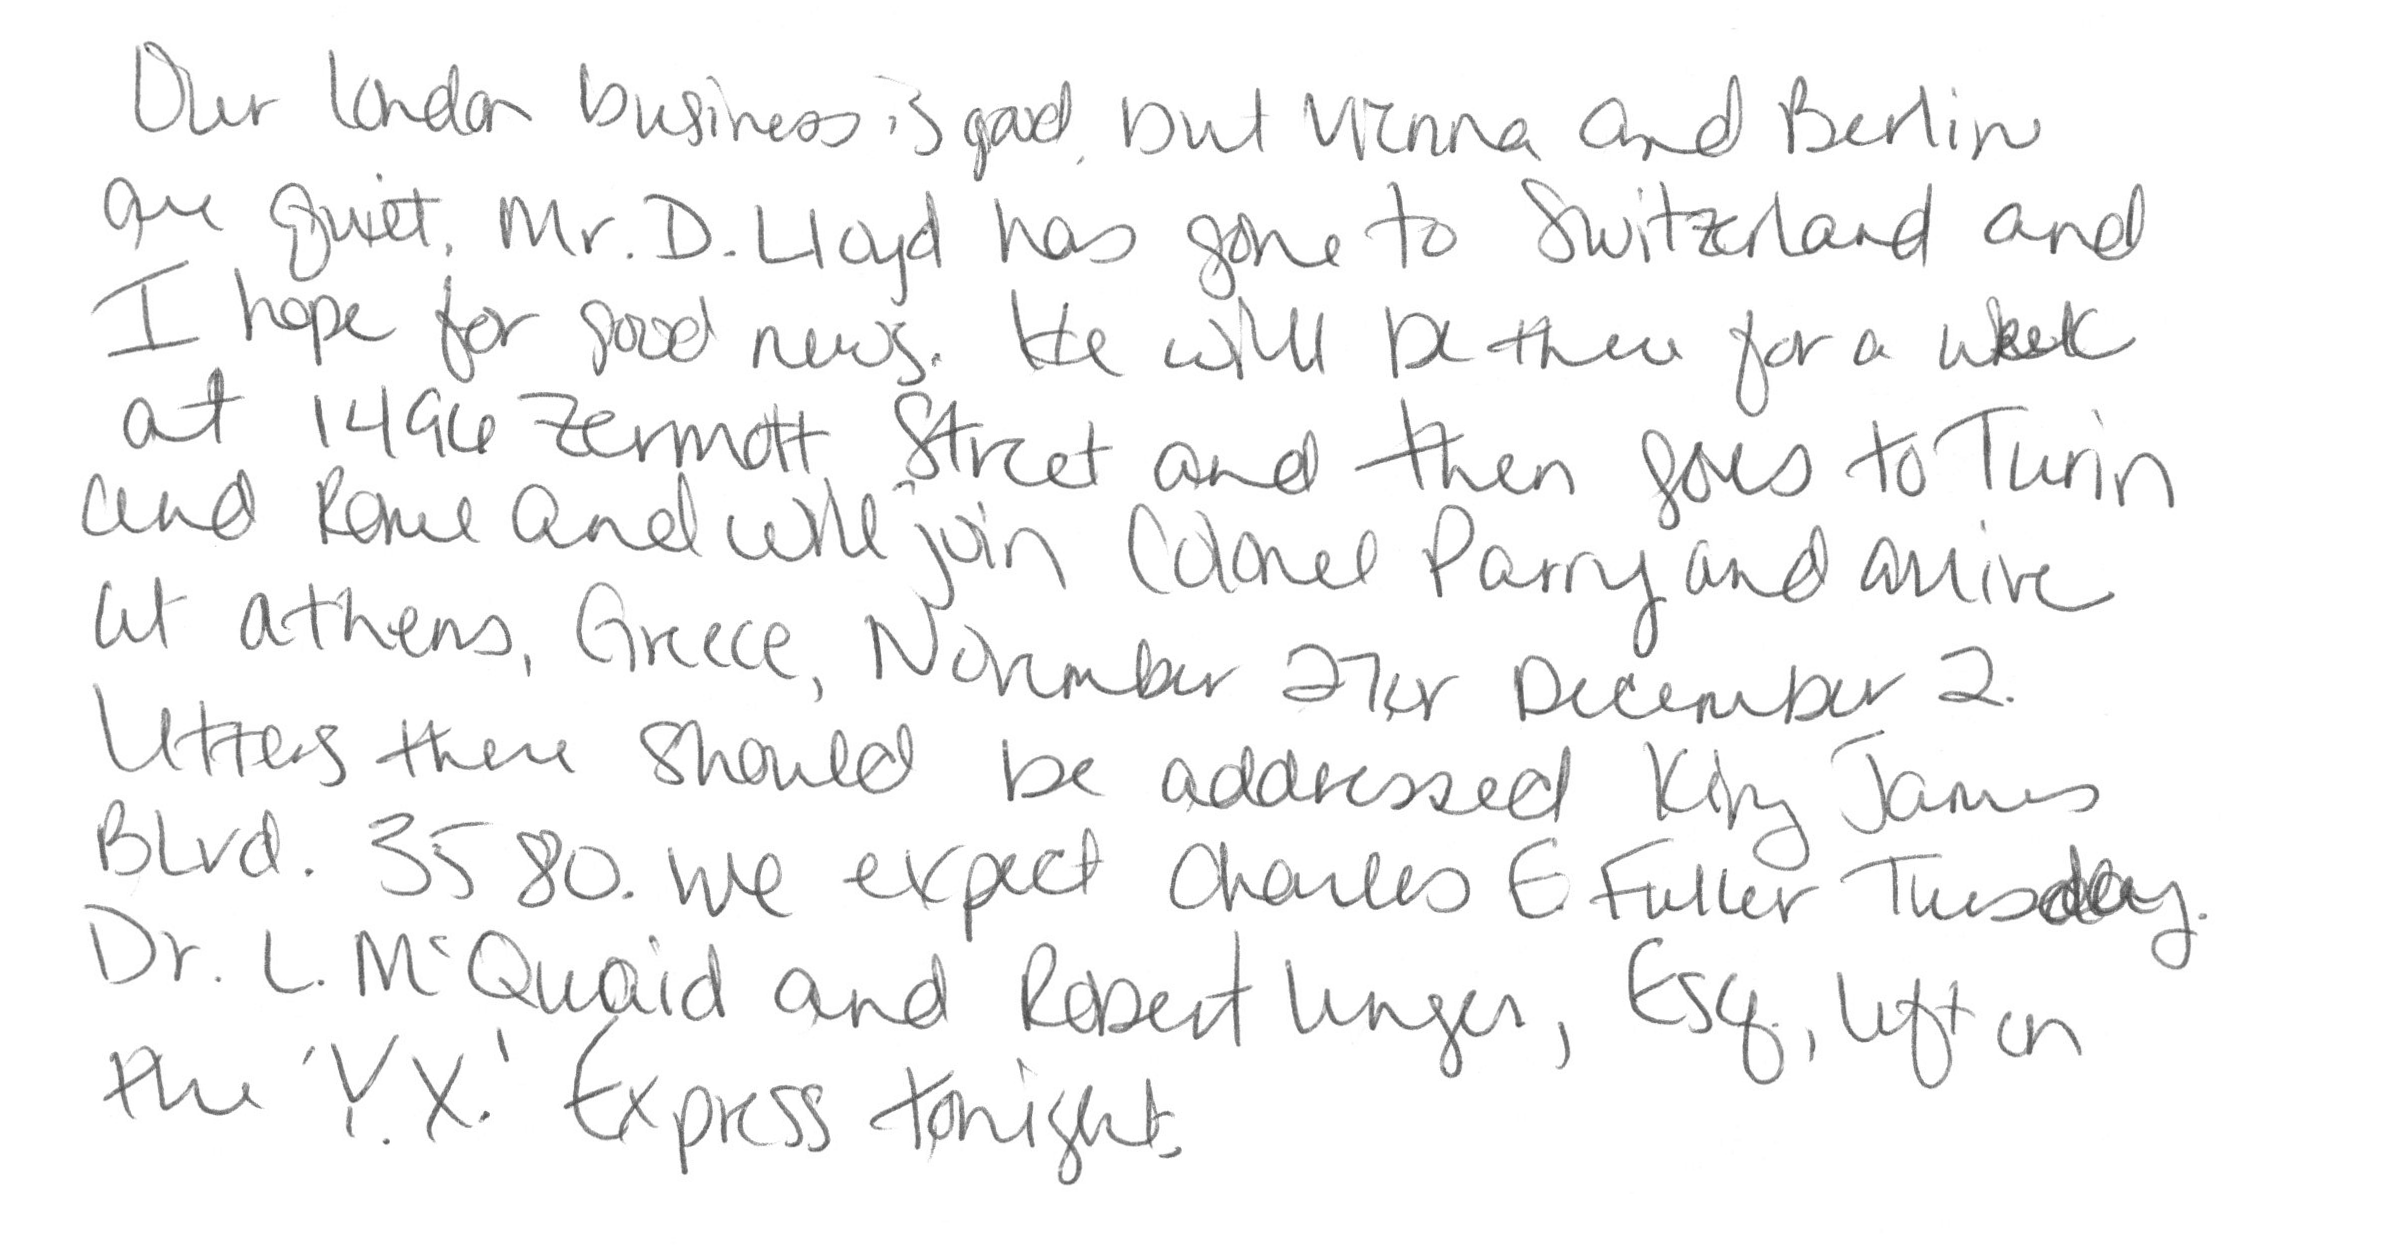 Our London business is good, but Vienna and Berlin
are quiet. Mr. D. Lloyd has gone to Switzerland and
I hope for good news. He will be there for a week
at 1496 Zermott Street and then goes to Turin
and Rome and will join Colonel Parry and arrive
at athens, Greece, November 27 or December 2.
Letters there should be addressed King James
Blvd. 3580. We expect Charles E. Fuller Tuesday.
Dr. L. McQuaid and Robert Unger, Esq., left on
the 'Y.X.' Express tonight.